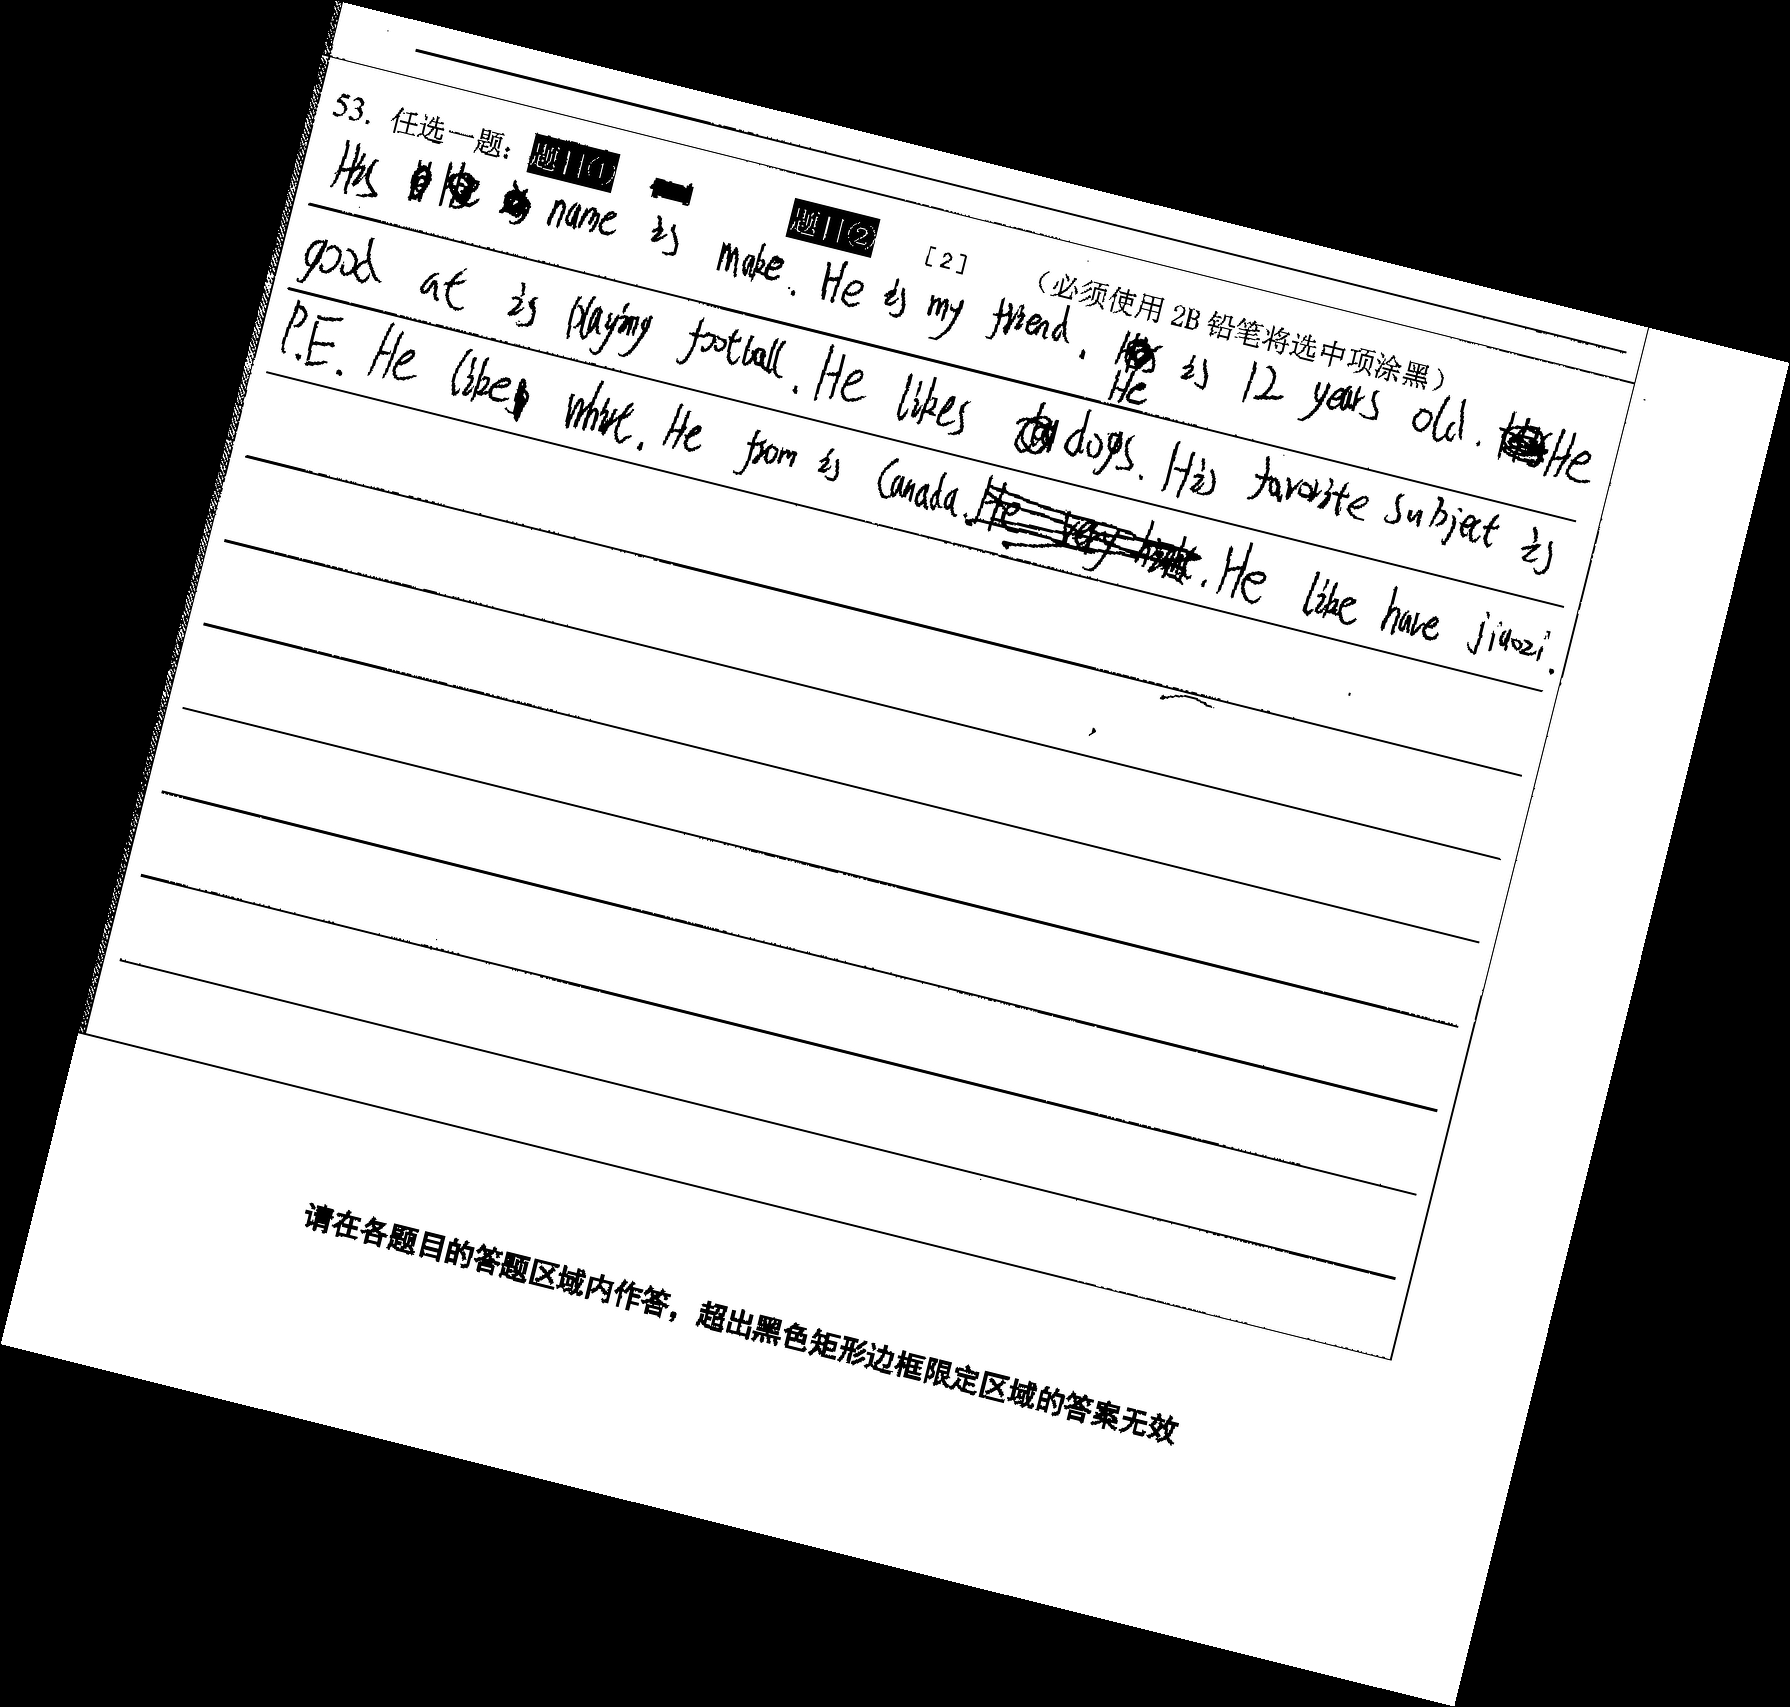 53. 任选一题：题目① 题目② [2] （必须使用 2B 铅笔将选中项涂黑）
His name is make. He is my friend. He is 12 years old. He
good at is playing football. He likes dogs. His favorite subject is
P.E. He like white. He from is Canada. He like have jiaozi.
请在各题目的答题区域内作答，超出黑色矩形边框限定区域的答案无效